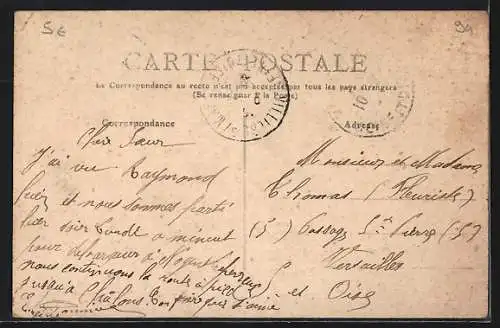 5€
CARTE POSTALE
La Correspondance au recto n'est pas acceptée par tous les pays étrangers
(Se renseigner à la Poste)
Correspondance
Adresse
Chère Sœur
J'ai vu Raymond
hier et nous sommes parti
hier soir lundi a minuit
pour
nous continuons la route à pied
jusqu'a Chalons
Monsieur et Madame
Thomas (Fleuriste)
(5) Passage St Pierre (5)
Versailles
et Oise